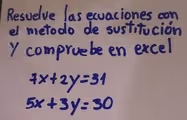 Resuelve las ecuaciones con
el metodo de sustitución
Y compruebe en excel
7x+2y=31
5x+3y=30